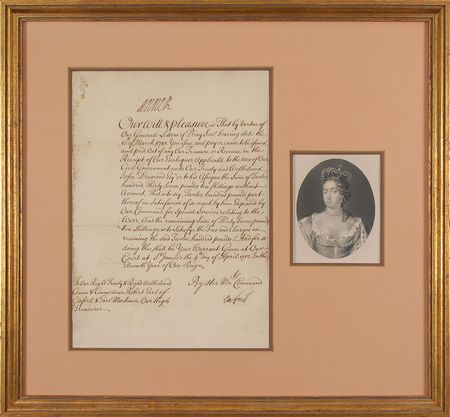 Anne R
Our Will & pleasure is That by Vertue of
Our General Letters of Privy Seal bearing date the
of March 1702 You issue and pay or cause to be issued
and paid Out of any Our Treasure or Revenue in the
Receipt of Our Exchequer Applicable to the uses of Our
Civil Government unto Our Trusty and Welbeloved
John Drumond Esq or to his Assignes the Sum of Twelve
hundred Thirty Seven pounds ten Shillings without
Account, That is to say, Twelve hundred pounds part
thereof in Satisfaction of so much by him Expended by
Our Command for Special Services relating to the
Warr, And the remaining Sum of Thirty Seven pounds
ten Shillings, is to Satisfie the Fees and Charges on
receiving the said Twelve hundred pounds. And for so
doing this shall be Your Warrant Given at Our
Court at St James's the day of April 1712 In the
Eleventh Year of Our Reign.
To Our Right Trusty & Right Welbeloved
Cousin & Councellour Robert Earl of
Oxford & Earl Mortimer Our High
Treasurer
By Her Mats Command
Oxford